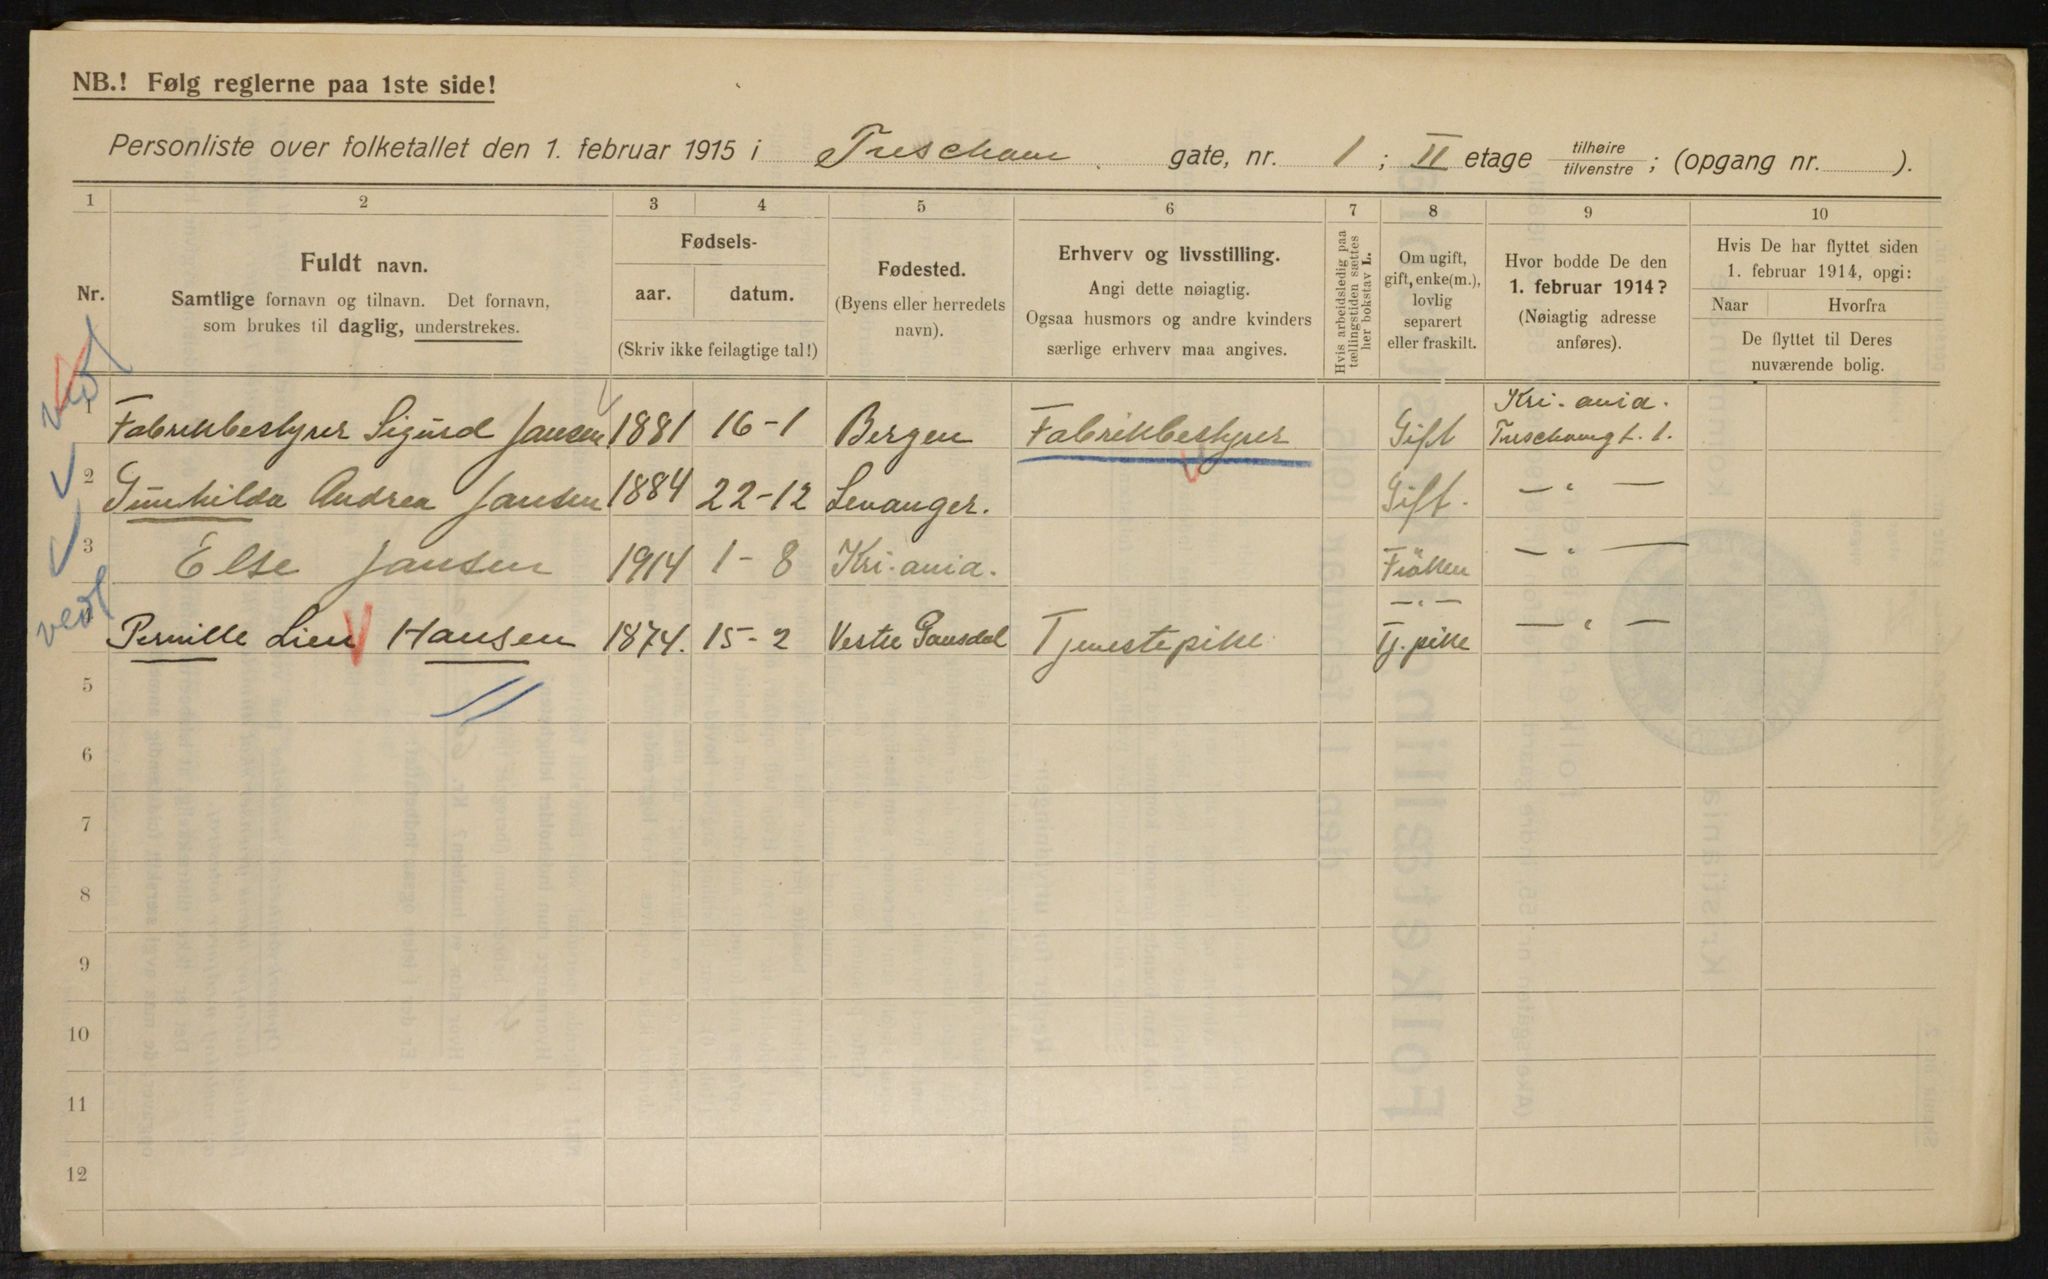 NB.! Følg reglerne paa 1ste side!
Personliste over folketallet den 1. februar 1915 i Treschow gate, nr. 1 ; II etage tilhøire tilvenstre ; (opgang nr. ).
1 2 3 4 5 6 7 8 9 10
Nr.
Fuldt navn.
Samtlige fornavn og tilnavn. Det fornavn,
som brukes til daglig, understrekes.
Fødsels-
aar. datum.
(Skriv ikke feilagtige tal!)
Fødested.
(Byens eller herredets
navn).
Erhverv og livsstilling.
Angi dette nøiagtig.
Ogsaa husmors og andre kvinders
særlige erhverv maa angives.
Hvis arbeidsledig paa
tællingstiden sættes
her bokstav L.
Om ugift,
gift, enke(m.),
lovlig
separert
eller fraskilt.
Hvor bodde De den
1. februar 1914?
(Nøiagtig adresse
anføres).
Hvis De har flyttet siden
1. februar 1914, opgi:
Naar Hvorfra
De flyttet til Deres
nuværende bolig.
Kri.ania.
1 Fabrikbestyrer Sigurd Jansen 1881 16-1 Bergen Fabrikbestyrer Gift Treschowgt. 1.
2 Gunhilda Andrea Jansen 1884 22-12 Levanger. Gift. — " —
3 Else Jansen 1914 1-8 Kri.ania. Fröken — " —
— " —
4 Pernille Lien Hansen 1874. 15-2 Vestre Gausdal Tjenestepike Tj. pike — " —
5
6
7
8
9
10
11
12